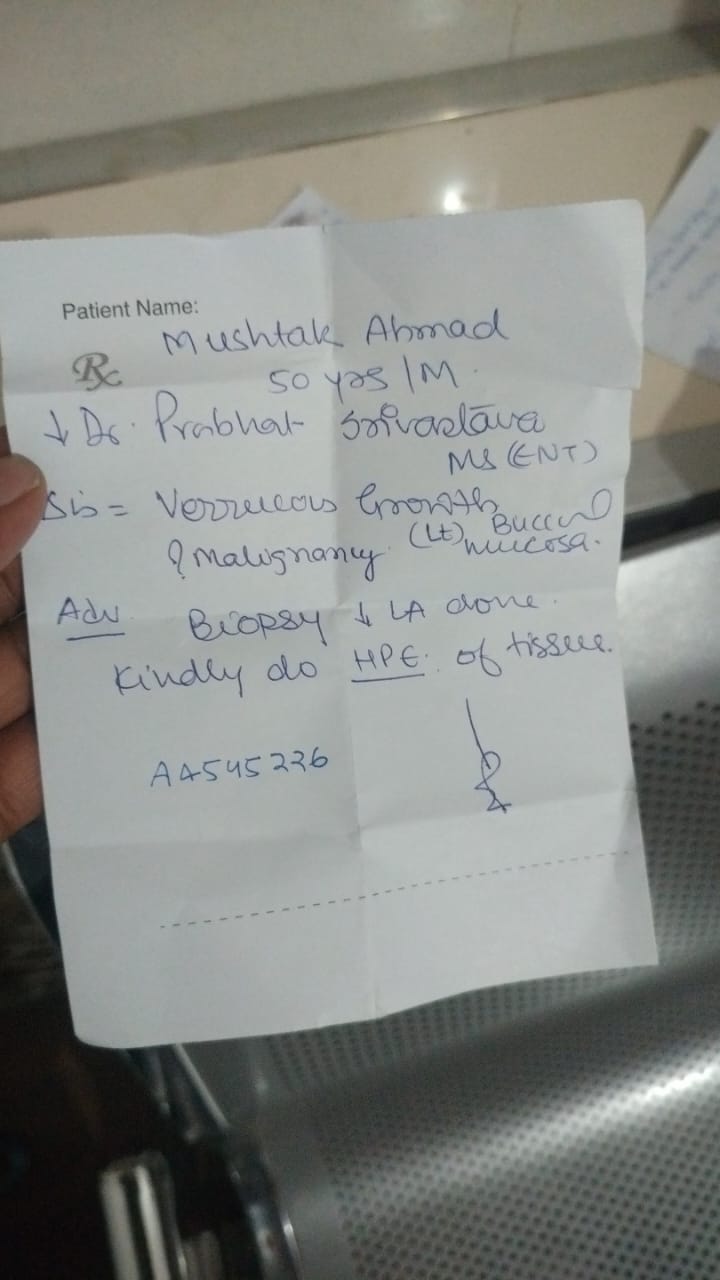 Patient Name:
Mushtak Ahmad
Rx 50 yrs / M.
↓ Dr. Prabhat Srivastava
MS (ENT)
Δsis = Verrucous Growth
(Lt) Buccal mucosa.
? malignancy
Adv Biopsy ↓ LA done.
Kindly do HPE. of tissue.
A4545226